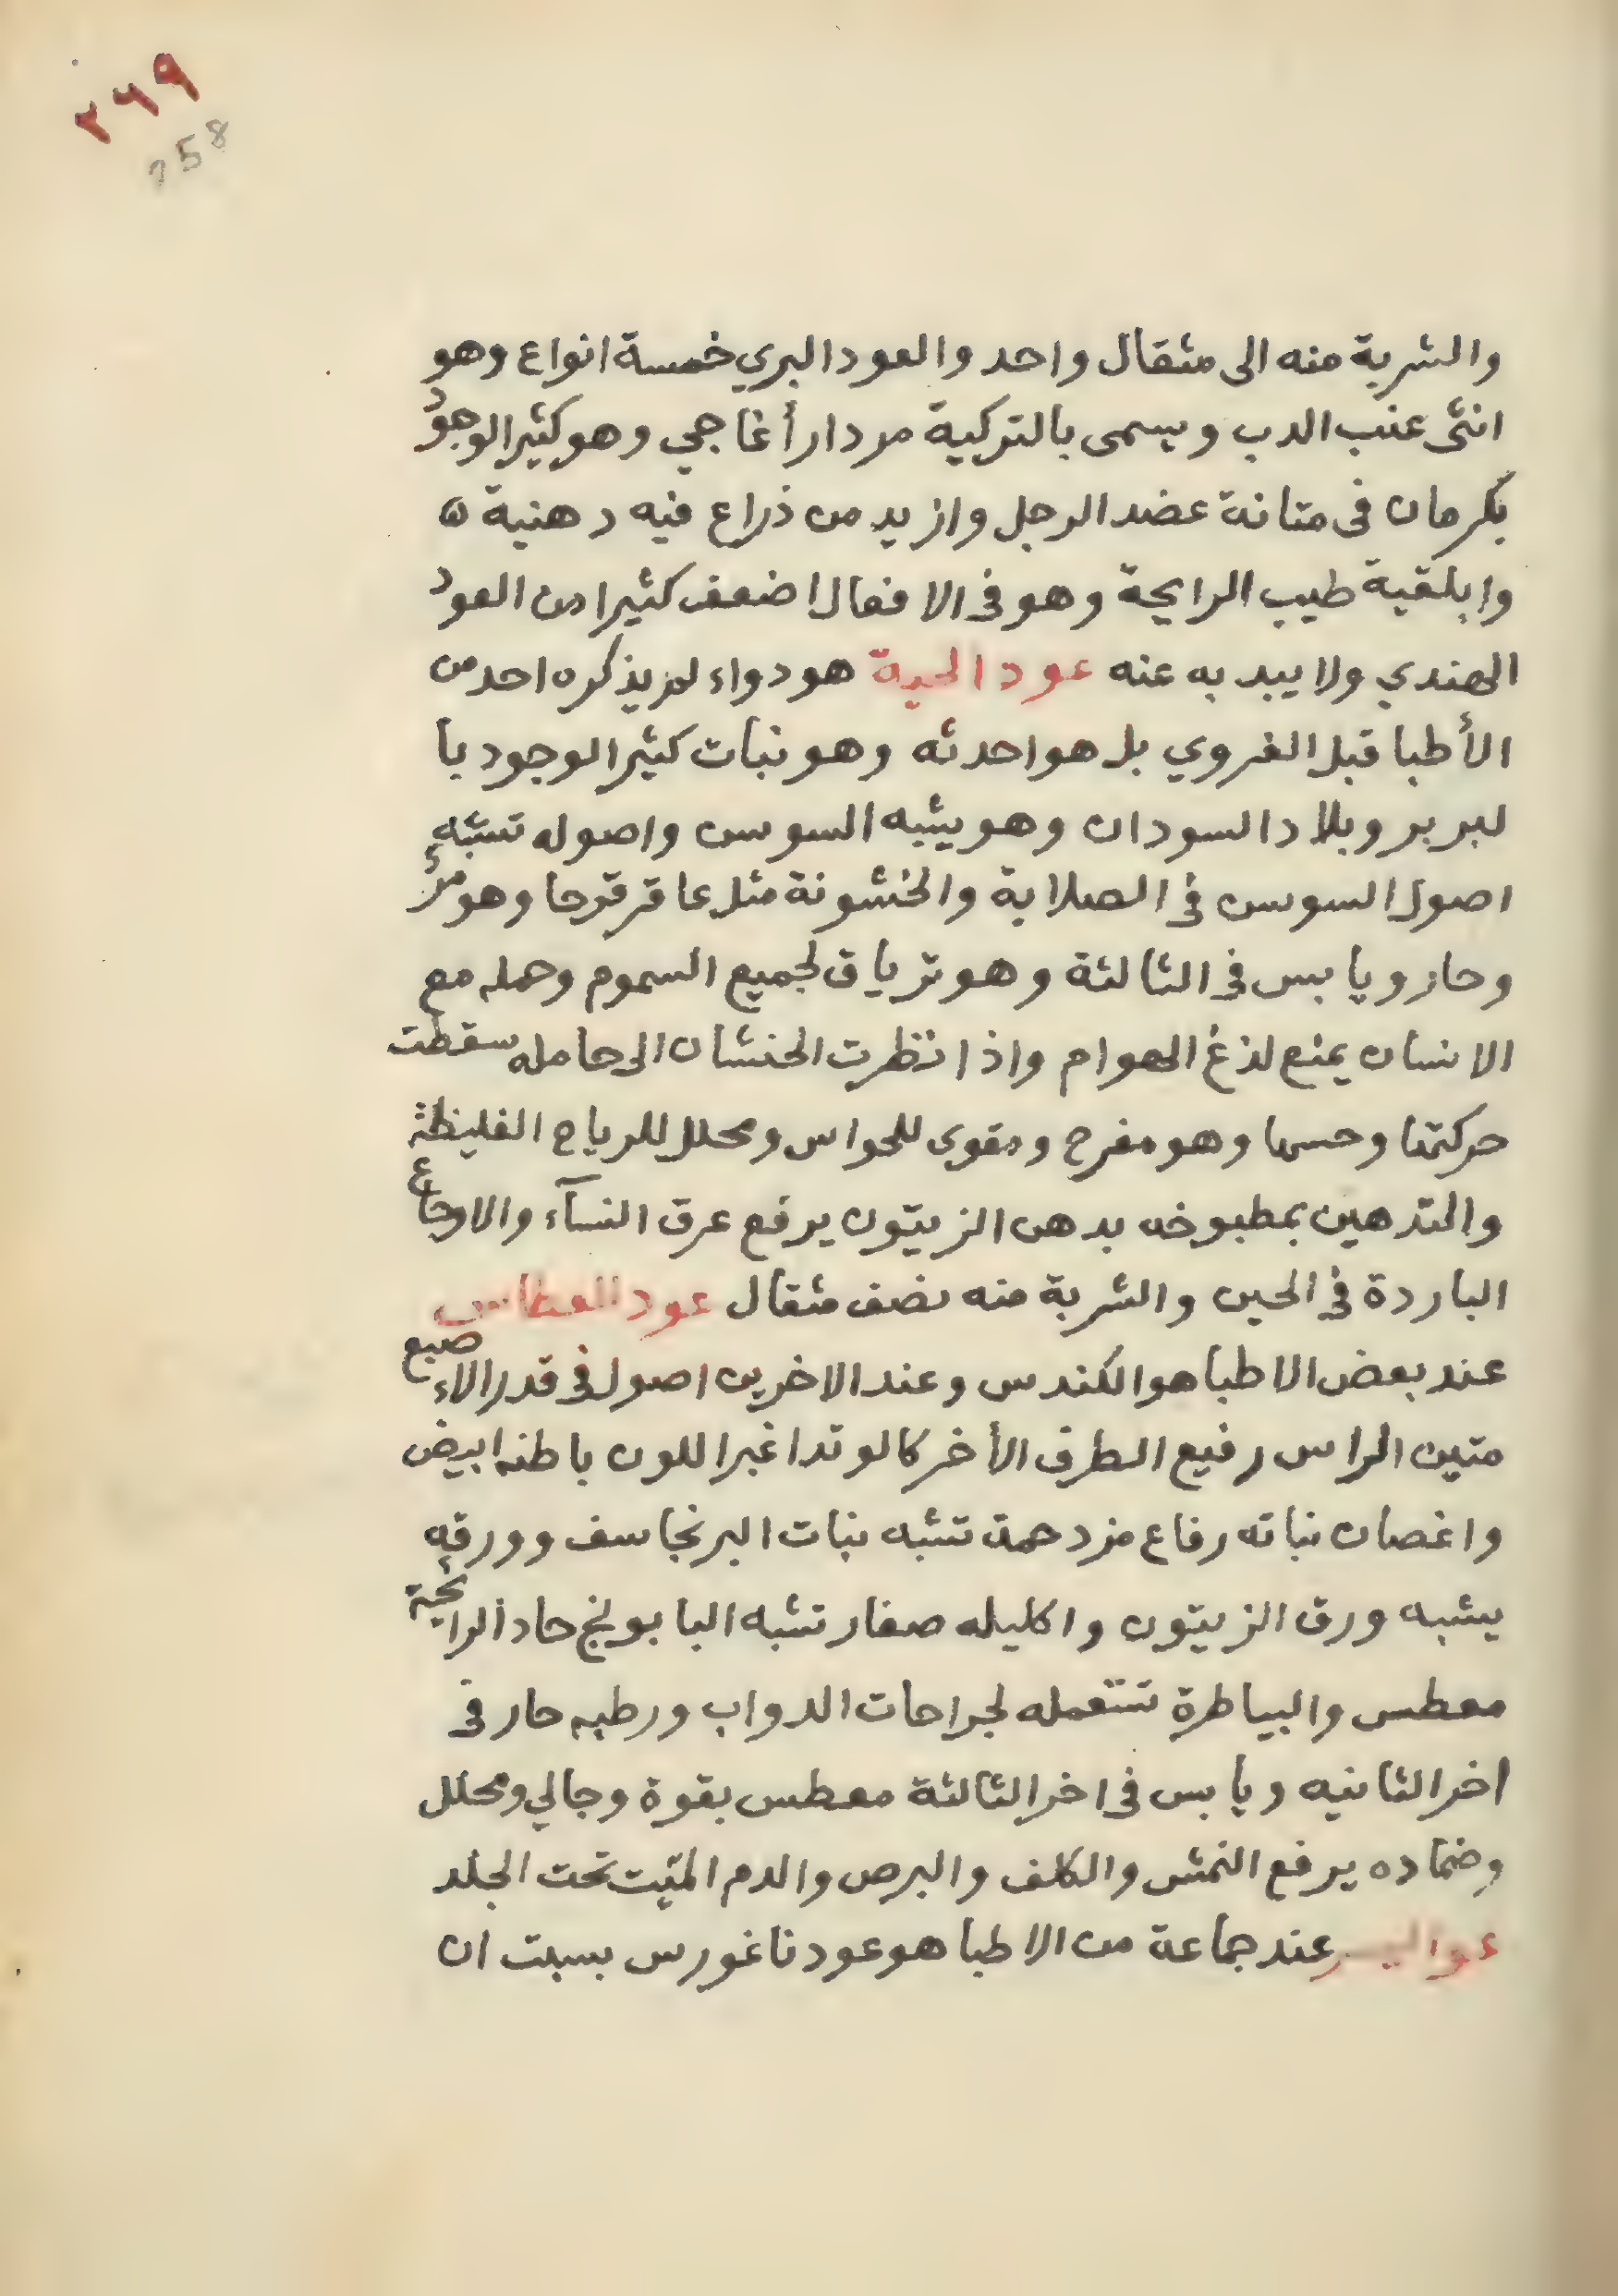 ٢٦٩
258
والشربة منه الى مثقال واحد والعود البري خمسة انواع وهو
انثى عنب الدب ويسمى بالتركية مردار أغاجي وهو كثير الوجود
بكرمان فى متانة عضد الرجل وازيد من ذراع فيه دهنية ۵
وابلقية طيب الرايحة وهو فى الافعال اضعف كثيرا من العود
الهندي ولا يبد به عنه عود الحية هو دواء لم يذكره احد من
الأطبا قبل الغروي بل هو احدثه وهو نبات كثير الوجود با
لبربر وبلاد السودان وهو يشبه السوسن واصوله تشبه
اصول السوسن فى الصلابة والخشونة مثل عاقر قرحا وهو مرّ
وحار ويابس فى الثالثة وهو ترياق لجميع السموم وحمله مع
الانسان يمنع لذغ الهوام واذا نظرت الحنشان الى حامله سقطت
حركتها وحسها وهو مفرح ومقوى للحواس ومحلل للرياح الغليظة
والتدهين بمطبوخه بدهن الزيتون يرفع عرق النسآء والاوجاع
الباردة فى الحين والشربة منه نصف مثقال عود العطاس
عند بعض الاطبا هو الكندس وعند الاخرين اصول فى قدر الاءصبع
متين الراس رفيع الطرف الأخر كالوتد اغبر اللون باطنه ابيض
واغصان نباته رفاع مزدحمة تشبه نبات البرنجاسف وورقه
يشبه ورق الزيتون واكليله صغار تشبه البابونج حاد الرائحية
معطس والبياطرة تستعمله لجراحات الدواب ورطبه حار فى
اخر الثانيه ويابس فى اخر الثالثة معطس بقوة وجالي ومحلل
وضماده يرفع النمش والكلف والبرص والدم الميّت تحت الجلد
عند جماعة من الاطبا هو عود ناغورس بسبت ان